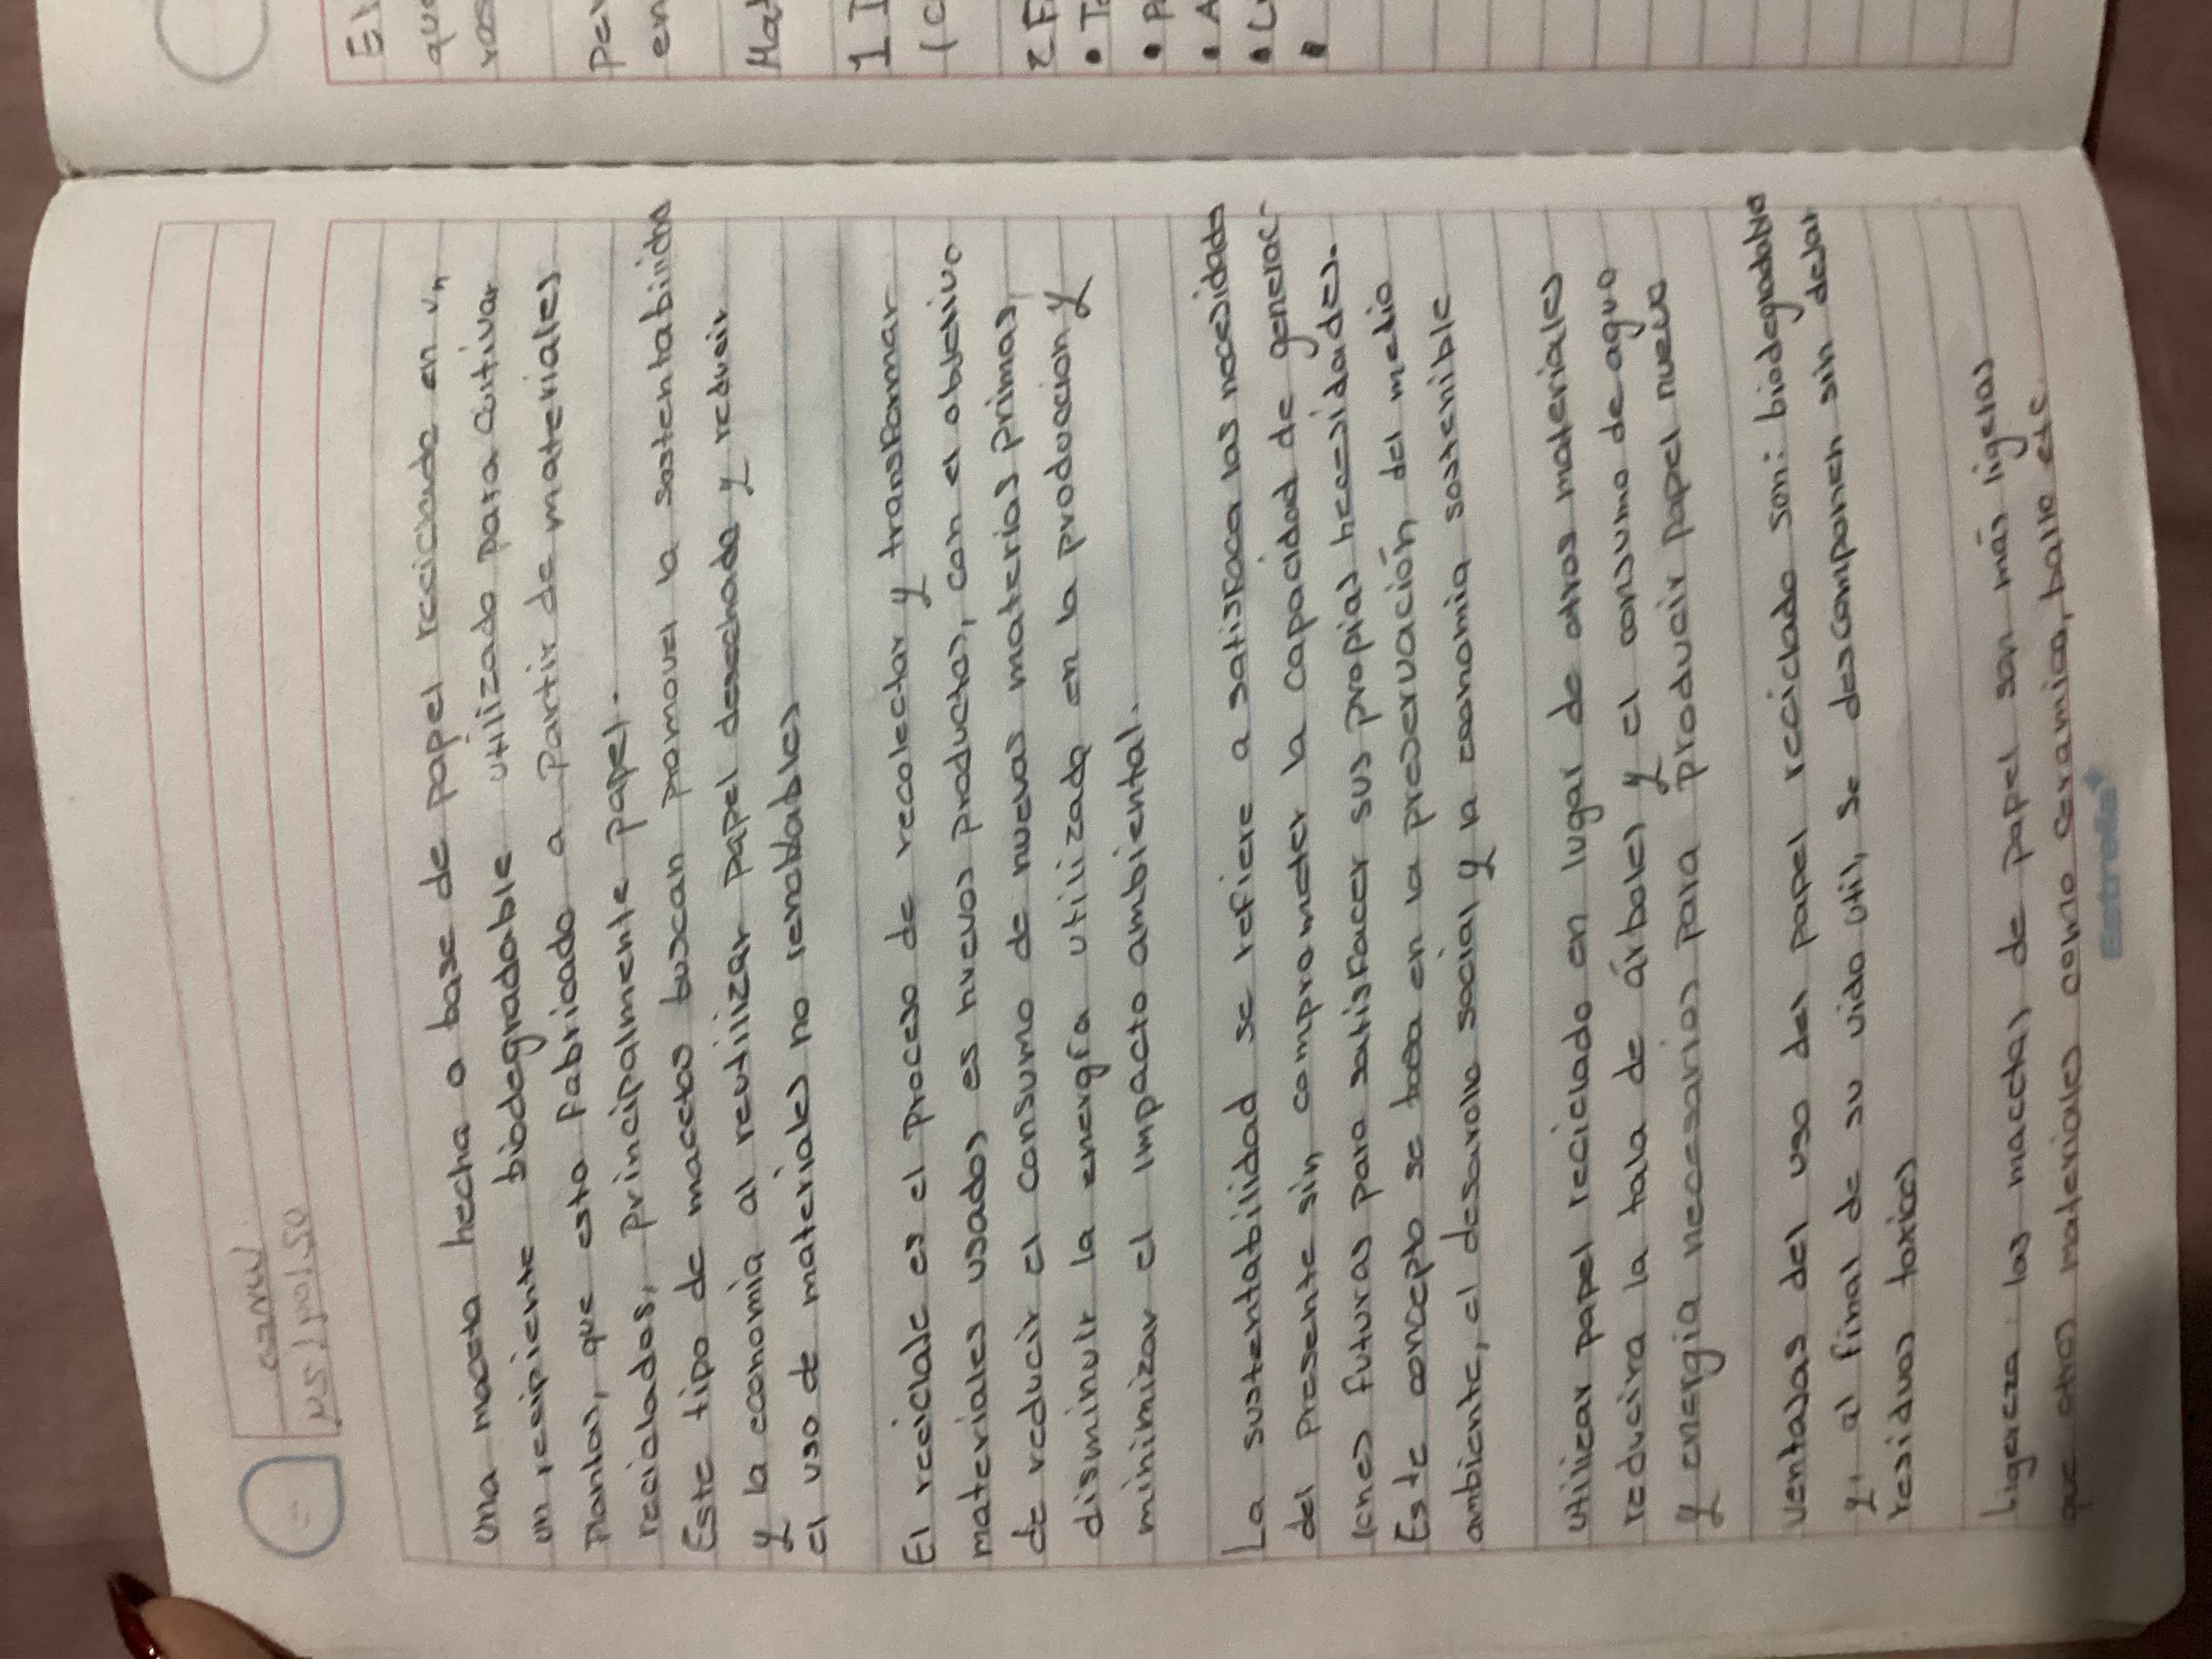 Una maceta hecha a base de papel reciclado en un
un recipiente biodegradable utilizado para cultivar
plantas, que esta fabricado a partir de materiales
reciclados, principalmente papel.
Este tipo de macetas buscan promover la sostentabilidad
y la economia al reutilizar papel desechado y reducir
el uso de materiales no renobables
El reciclaje es el proceso de recolectar y transformar
materiales usados es nuevos productos, con el objetivo
de reducir el consumo de nuevas materias primas,
disminuir la energía utilizada en la produccion y
minimizar el impacto ambiental.
La sustentabilidad se refiere a satisfaca las necesidades
del presente sin comprometer la capacidad de generac-
iones futuras para satisfacer sus propias necesidades.
Este concepto se basa en la preservación del medio
ambiente, el desarollo social y la economia sostenible
utilizar papel reciclado en lugar de otros materiales
reducira la tala de árboles y el consumo de agua
y energia necesarios para producir papel nuevo
Ventajas del uso del papel reciclado son: biodegradable
y, al final de su vida útil, se descomponen sin dejar
residuos toxicos
Ligereza: las macetas de papel son más ligeras
que otros materiales como ceramica, barro etc.
Estrella
El
que
ros
Per
en
Mat
1 I
(c
2 F
• To
• P
• A
• Lu
•